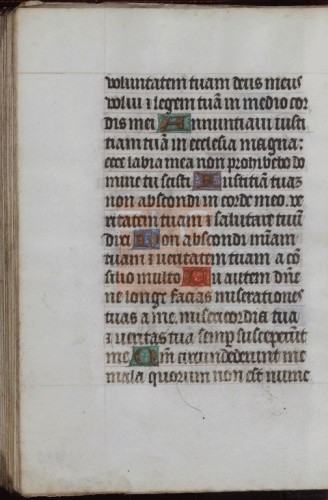 voluntatem tuam deus meus
volui ⁊ legem tuā in medio cor
dis mei Annuntiaui iusti
tiam tuā in ecclesia magna:
ecce labia mea non prohibebo do
mine tu scisti Iustitiā tuaz
non abscondi in corde meo. ve
ritatem tuam ⁊ salutare tuū
dixi Non abscondi mīam
tuam ⁊ veritatem tuam a cō
silio multo Tu autem dn̄e
ne longe facias miserationes
tuas a me. misericordia tua
⁊ veritas tua semp susceperūt
me Qm̄ circundederunt me
mala quorum non est nume